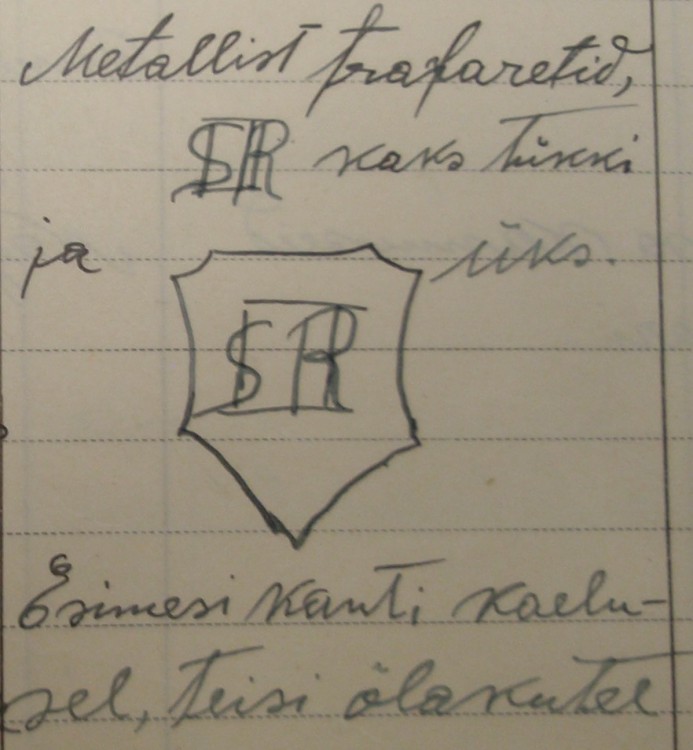 Metallist trafaretid,
SR kaks tükki
ja üks.
SR
Esimesi kanti kaelu-
sel, teisi õlakutel